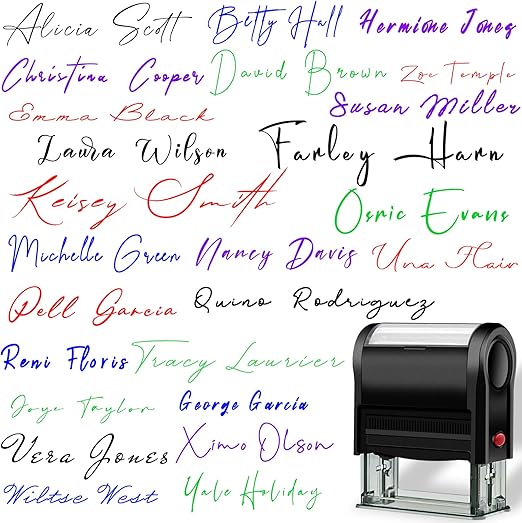 Alicia Scott Bitty Hall Hermione Jones
Christina Cooper David Brown Zoe Temple
Emma Black Susan Miller
Laura Wilson Farley Harn
Keisey Smith
Osric Evans
Michelle Green Nancy Davis Una Flair
Pell Garcia Quino Rodriguez
Reni Floris Tracy Laurier
Joye Taylor George García
Vera Jones Ximo Olson
Wiltse West Yale Holiday